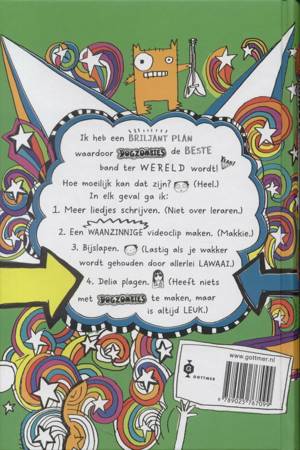 Ik heb een BRILJANT PLAN
waardoor DOGZOMBIES de BESTE
band ter WERELD wordt!
Hoe moeilijk kan dat zijn? (Heel.)
In elk geval ga ik:
1. Meer liedjes schrijven. (Niet over leraren.)
2. Een WAANZINNIGE videoclip maken. (Makkie.)
3. Bijslapen. (Lastig als je wakker
wordt gehouden door allerlei LAWAAI.)
4. Delia plagen. (Heeft niets
met DOGZOMBIES te maken, maar
is altijd LEUK.)
www.gottmer.nl
GOTTMER
9 789025 767099